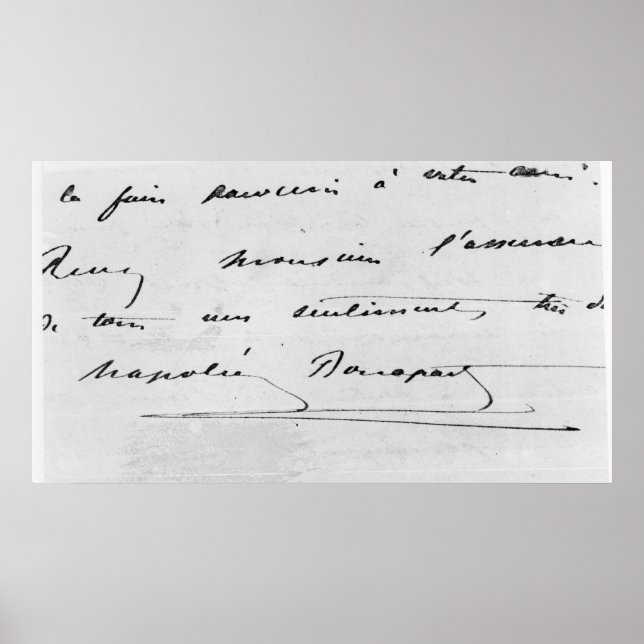 la faire parvenir à votre ami.
Recevez Monsieur l'assurance
de tous mes sentiments, très d
Napoléon Bonaparte